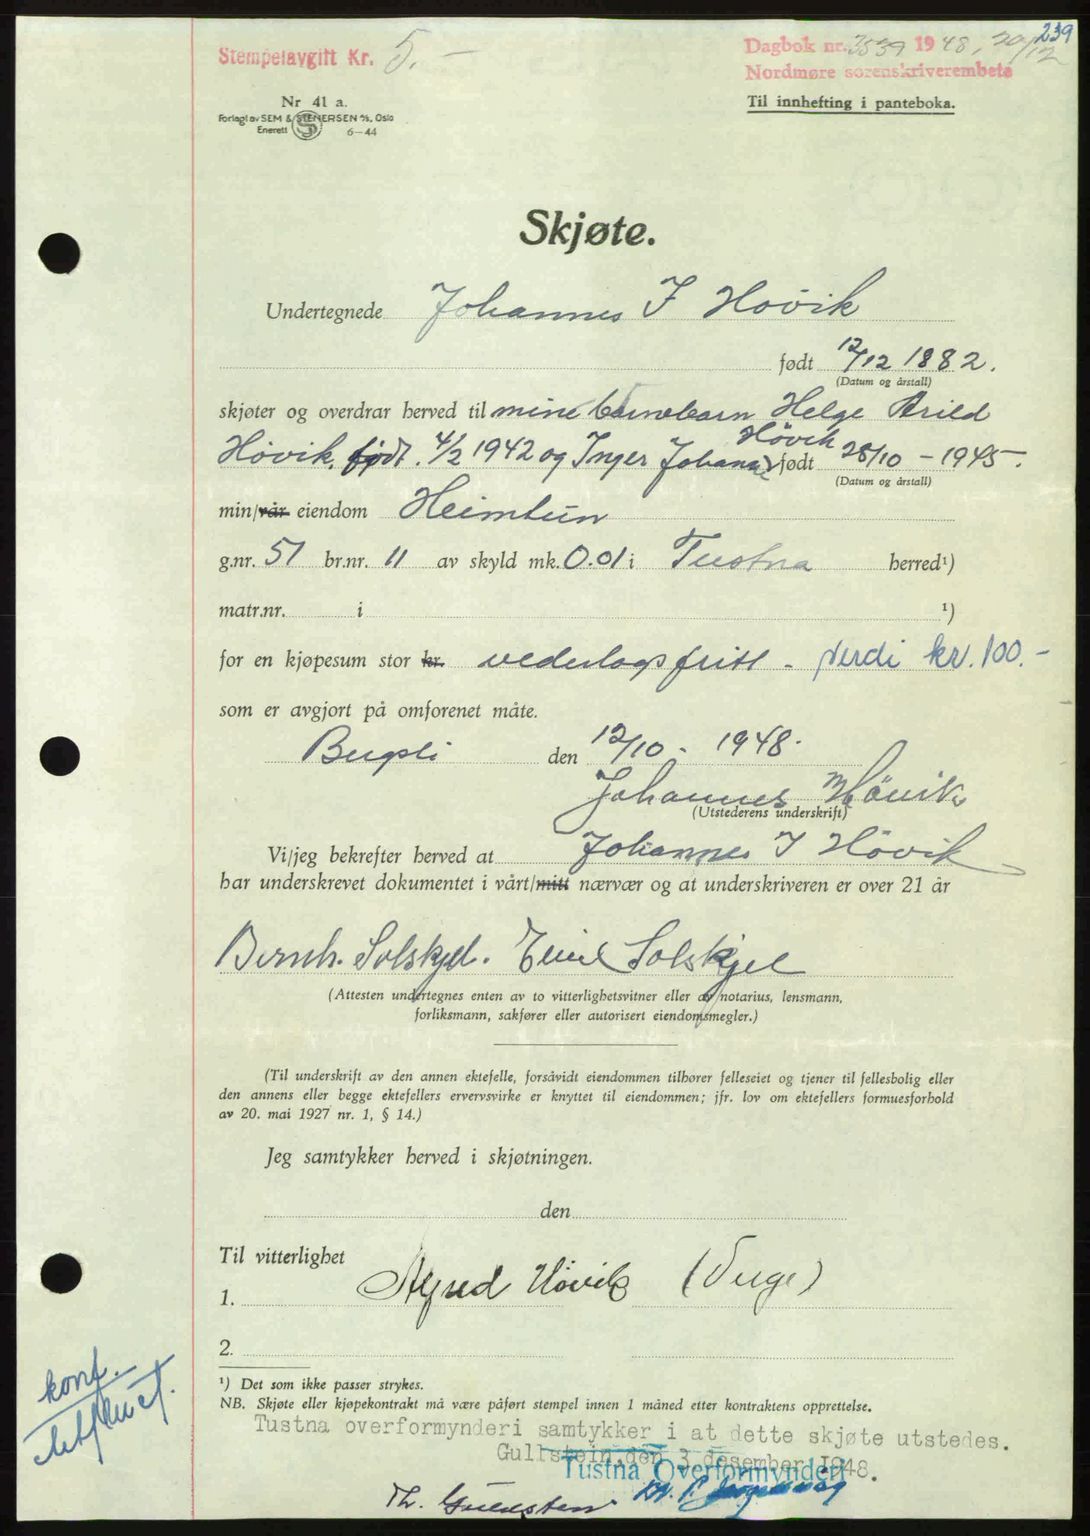 239
Stempelavgift Kr. 5.-
Dagbok nr. 3539 1948, 20/12
Nordmøre sorenskriverembete
Nr 41 a.
Til innhefting i panteboka.
Forlagt av SEM & STENERSEN A/S, Oslo
Enerett 6-44
Skjøte.
Undertegnede Johannes I Hovik
født 12/12 1882.
(Datum og årstall)
skjøter og overdrar herved til mine barnebarn Helge Arild
Høvik
Hövik, født. 4/2 1942 og Inger Johanne født 28/10 - 1945.
(Datum og årstall)
min/vår eiendom Heimtun
g.nr. 51 br.nr. 11 av skyld mk. 0.01 i Tustna herred¹)
matr.nr. i ¹)
for en kjøpesum stor kr. vederlagsfritt - Verdi kr. 100.-
som er avgjort på omforenet måte.
den 12/10 - 1948.
Johannes Hövik
(Utstederens underskrift)
Vi/jeg bekrefter herved at Johannes I Hövik
har underskrevet dokumentet i vårt/mitt nærvær og at underskriveren er over 21 år
Bernh. Solskjel. Solskjel
(Attesten undertegnes enten av to vitterlighetsvitner eller av notarius, lensmann,
forliksmann, sakfører eller autorisert eiendomsmegler.)
(Til underskrift av den annen ektefelle, forsåvidt eiendommen tilhører felleseiet og tjener til fellesbolig eller
den annens eller begge ektefellers ervervsvirke er knyttet til eiendommen; jfr. lov om ektefellers formuesforhold
av 20. mai 1927 nr. 1, § 14.)
Jeg samtykker herved i skjøtningen.
den
Til vitterlighet
1. Alfred Hövik (Verge)
2.
¹) Det som ikke passer strykes.
NB. Skjøte eller kjøpekontrakt må være påført stempel innen 1 måned etter kontraktens opprettelse.
konf.
Tustna overformynderi samtykker i at dette skjøte utstedes.
Gullstein, den 3 desember 1948.
Tustna Overformynderi
Th. Gullstein